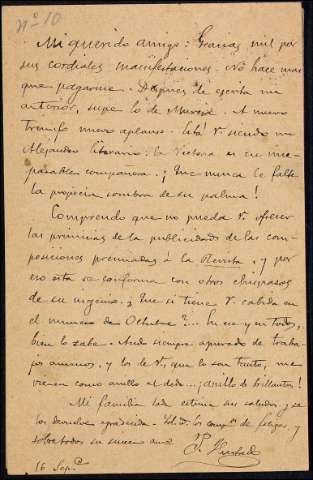 nº 10
Mi querido amigo: Gracias mil por
sus cordiales manifestaciones. No hace mas
que pagarme. Despues de escrita mi
anterior, supe lo de Murcia. A nuevo
triunfo nuevo aplauso. Está V. siendo un
Alejandro literario: la Victoria es su inse-
parable compañera. ¡Que nunca le falte
la propicia sombra de su palma!
Comprendo que no pueda V. ofrecer
las primicias de la publicidad de las com-
posiciones premiadas á la Revista, y por
eso ésta se conforma con otros chispazos
de su ingenio. ¿Que si tiene V. cabida en
el número de Octubre?... En ese y en todos,
bien lo sabe. Ando siempre apurado de traba-
jos amenos, y los de V., que lo son tanto, me
vienen como anillo al dedo... ¡anillo de brillantes!
Mi familia toda estima sus saludos y se
los devuelve agradecida.
y
sabe todos su sincero amº
16 Sepe